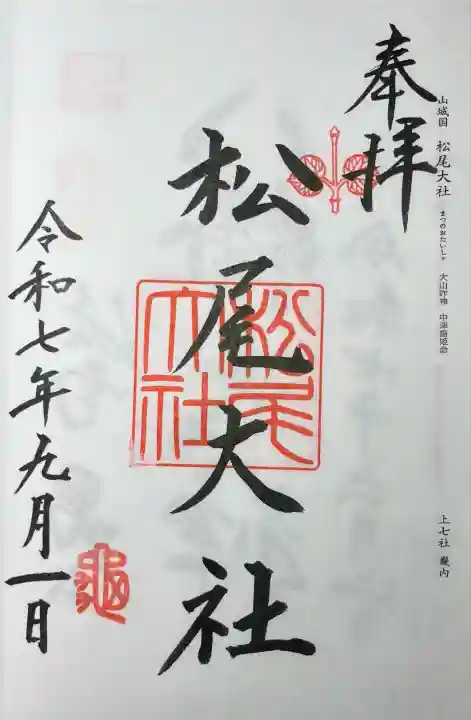 山城国 松尾大社 まつのおたいしゃ 大山咋神 中津嶋姫命
上七社 畿内
奉拝
松尾大社
松尾大社
令和七年九月一日
亀